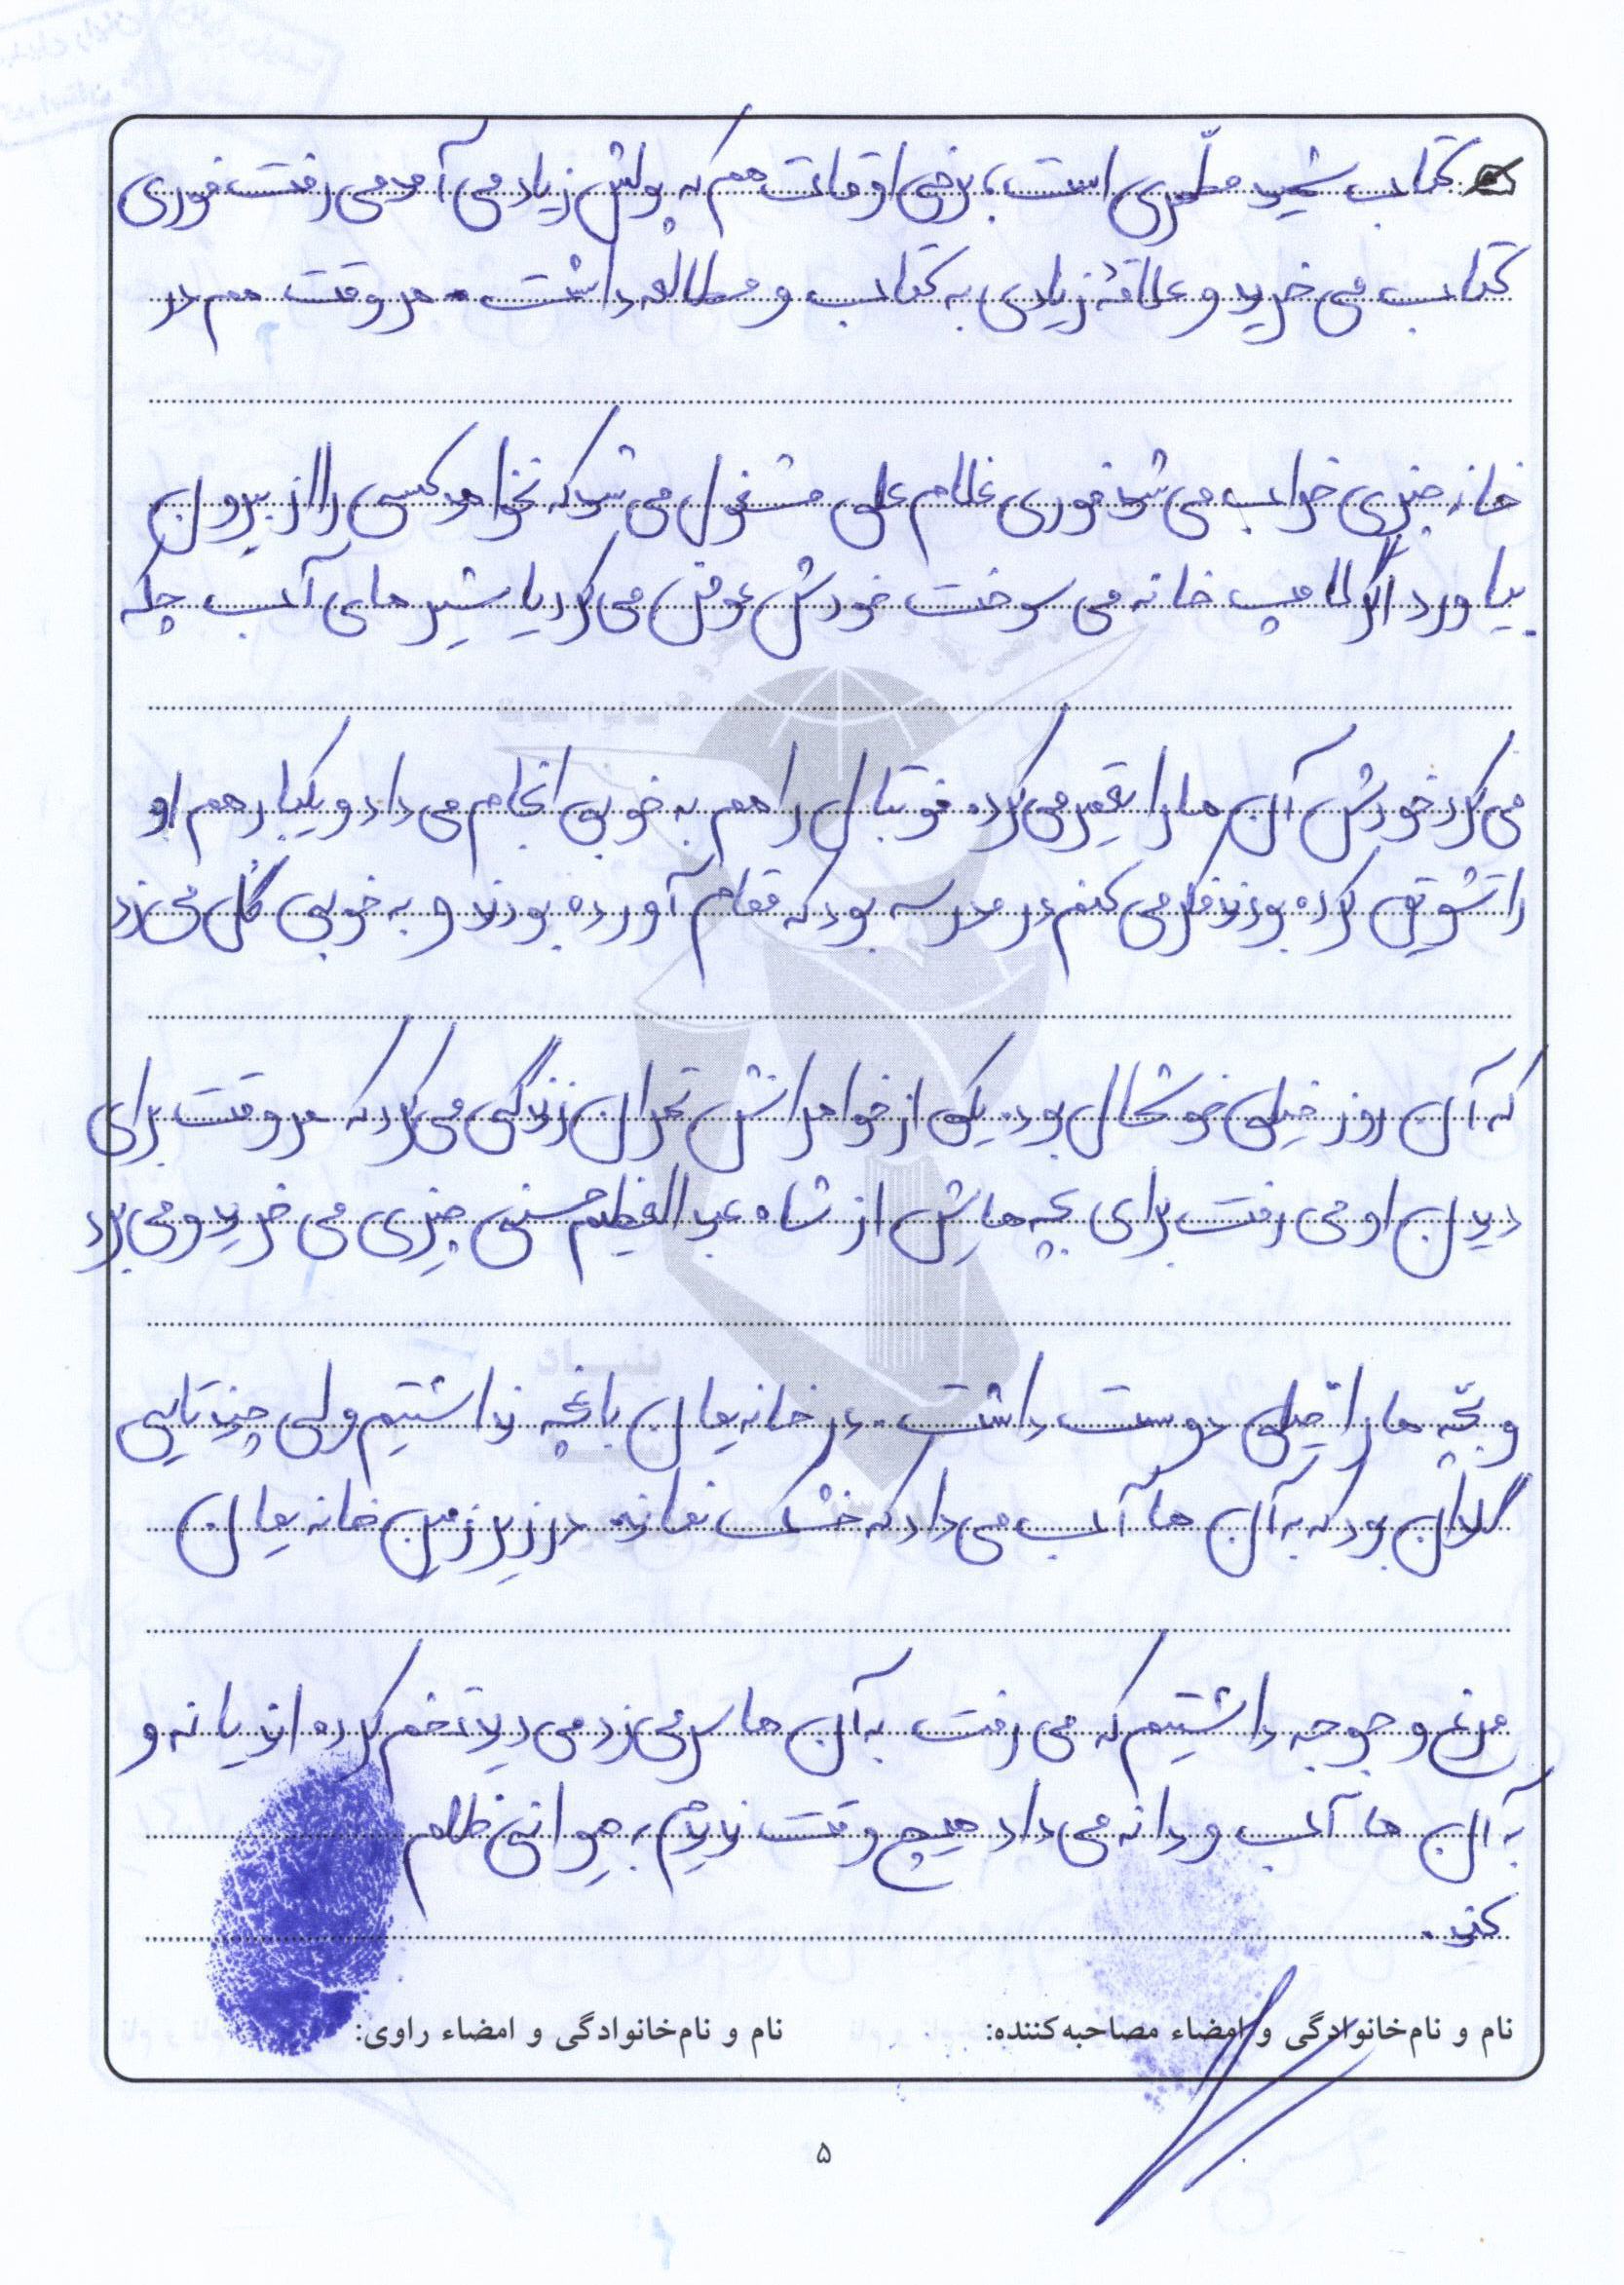 کتاب شهید مطهّری است، برخی اوقات هم که پولش زیاد می آمد می رفت فوری
کتاب می خرید و علاقهٔ زیادی به کتاب و مطالعه داشت. هر وقت هم در
خانه چیزی خراب می شد فوری غلام علی مشغول می شد که نخواهد کسی را از بیرون
بیاورد اگر لامپ خانه می سوخت خودش عوض می کرد یا شیرهای آب چکه
می کرد خودش آن ها را تعمیر می کرد. فوتبال را هم به خوبی انجام می داد و یکبار هم او
را تشویق کرده بودند فکر می کنم در مدرسه بود که مقام آورده بودند و به خوبی گل می زد
که آن روز خیلی خوشحال بود. یکی از خواهرانش تهران زندگی می کرد که هر وقت برای
دیدن او می رفت برای بچه هایش از شاه عبدالعظیم حسنی چیزی می خرید و می برد
و بچّه ها را خیلی دوست داشت. در خانه یمان باغچه نداشتیم ولی چندتایی
گلدان بود که به آن ها آب می داد که خشک نماند. در زیر زمین خانه یمان
مرغ و جوجه داشتیم که می رفت به آن ها سر می زد می دید تخم کرده اند یا نه و
به آن ها آب و دانه می داد هیچ وقت ندیدم به حیوانی ظلم
کند.
نام و نام‌خانوادگی و امضاء مصاحبه‌کننده: نام و نام‌خانوادگی و امضاء راوی:
۵